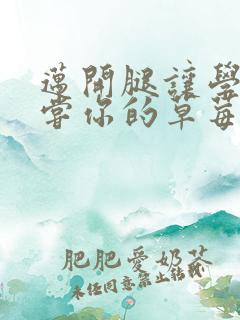 邁開腿讓學
嘗你的草莓
肥肥愛奶茶
未任同意禁止轉載